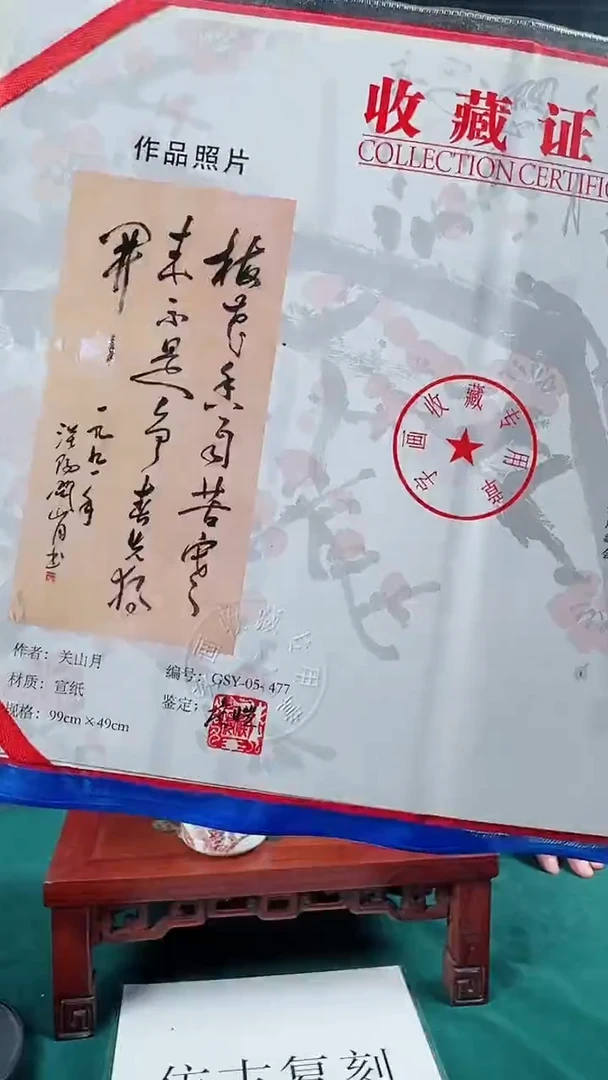 收藏证
COLLECTION CERTIFI
作品照片
梅花香自苦寒
来不是争春先独
开
一九九一年
漠阳关山月书
字画收藏专用章
作者：关山月
材质：宣纸
规格：99cm×49cm
编号：GSY-05-477
鉴定：
仿古复刻